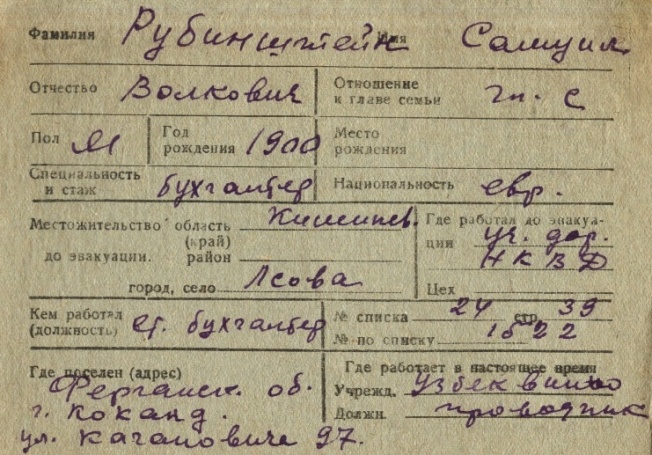 Фамилия Рубинштейн Имя Самуил
Отчество Волкович Отношение к главе семьи гл. с
Пол М Год рождения 1900 Место рождения
Специальность и стаж бухгалтер Национальность евр.
Местожительство до эвакуации. область (край) Кишинев. Где работал до эвакуа-
район ции уч. дор.
НКВД
город, село Лсова Цех
Кем работал (должность) ст. бухгалтер № списка 24 стр. 39
№ по списку 1522
Где поселен (адрес) Где работает в настоящее время
Ферганск. об. Учрежд. Узбеквино
г. Коканд. Должн. проводник
ул. Кагановича 97.